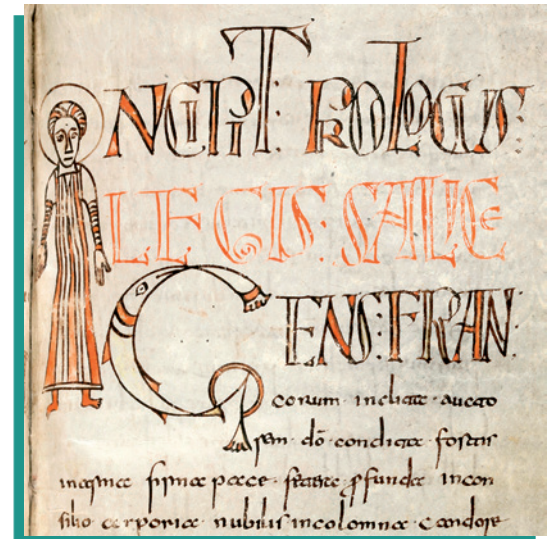 INCIPIT PROLOGUS:
LEGIS: SALICE
GENS: FRAN:
corum · inclita · aucto
rem · dō · condita · fortis
firma pace · ꝓfunda in con
silio corporia nubilis incolomna candore